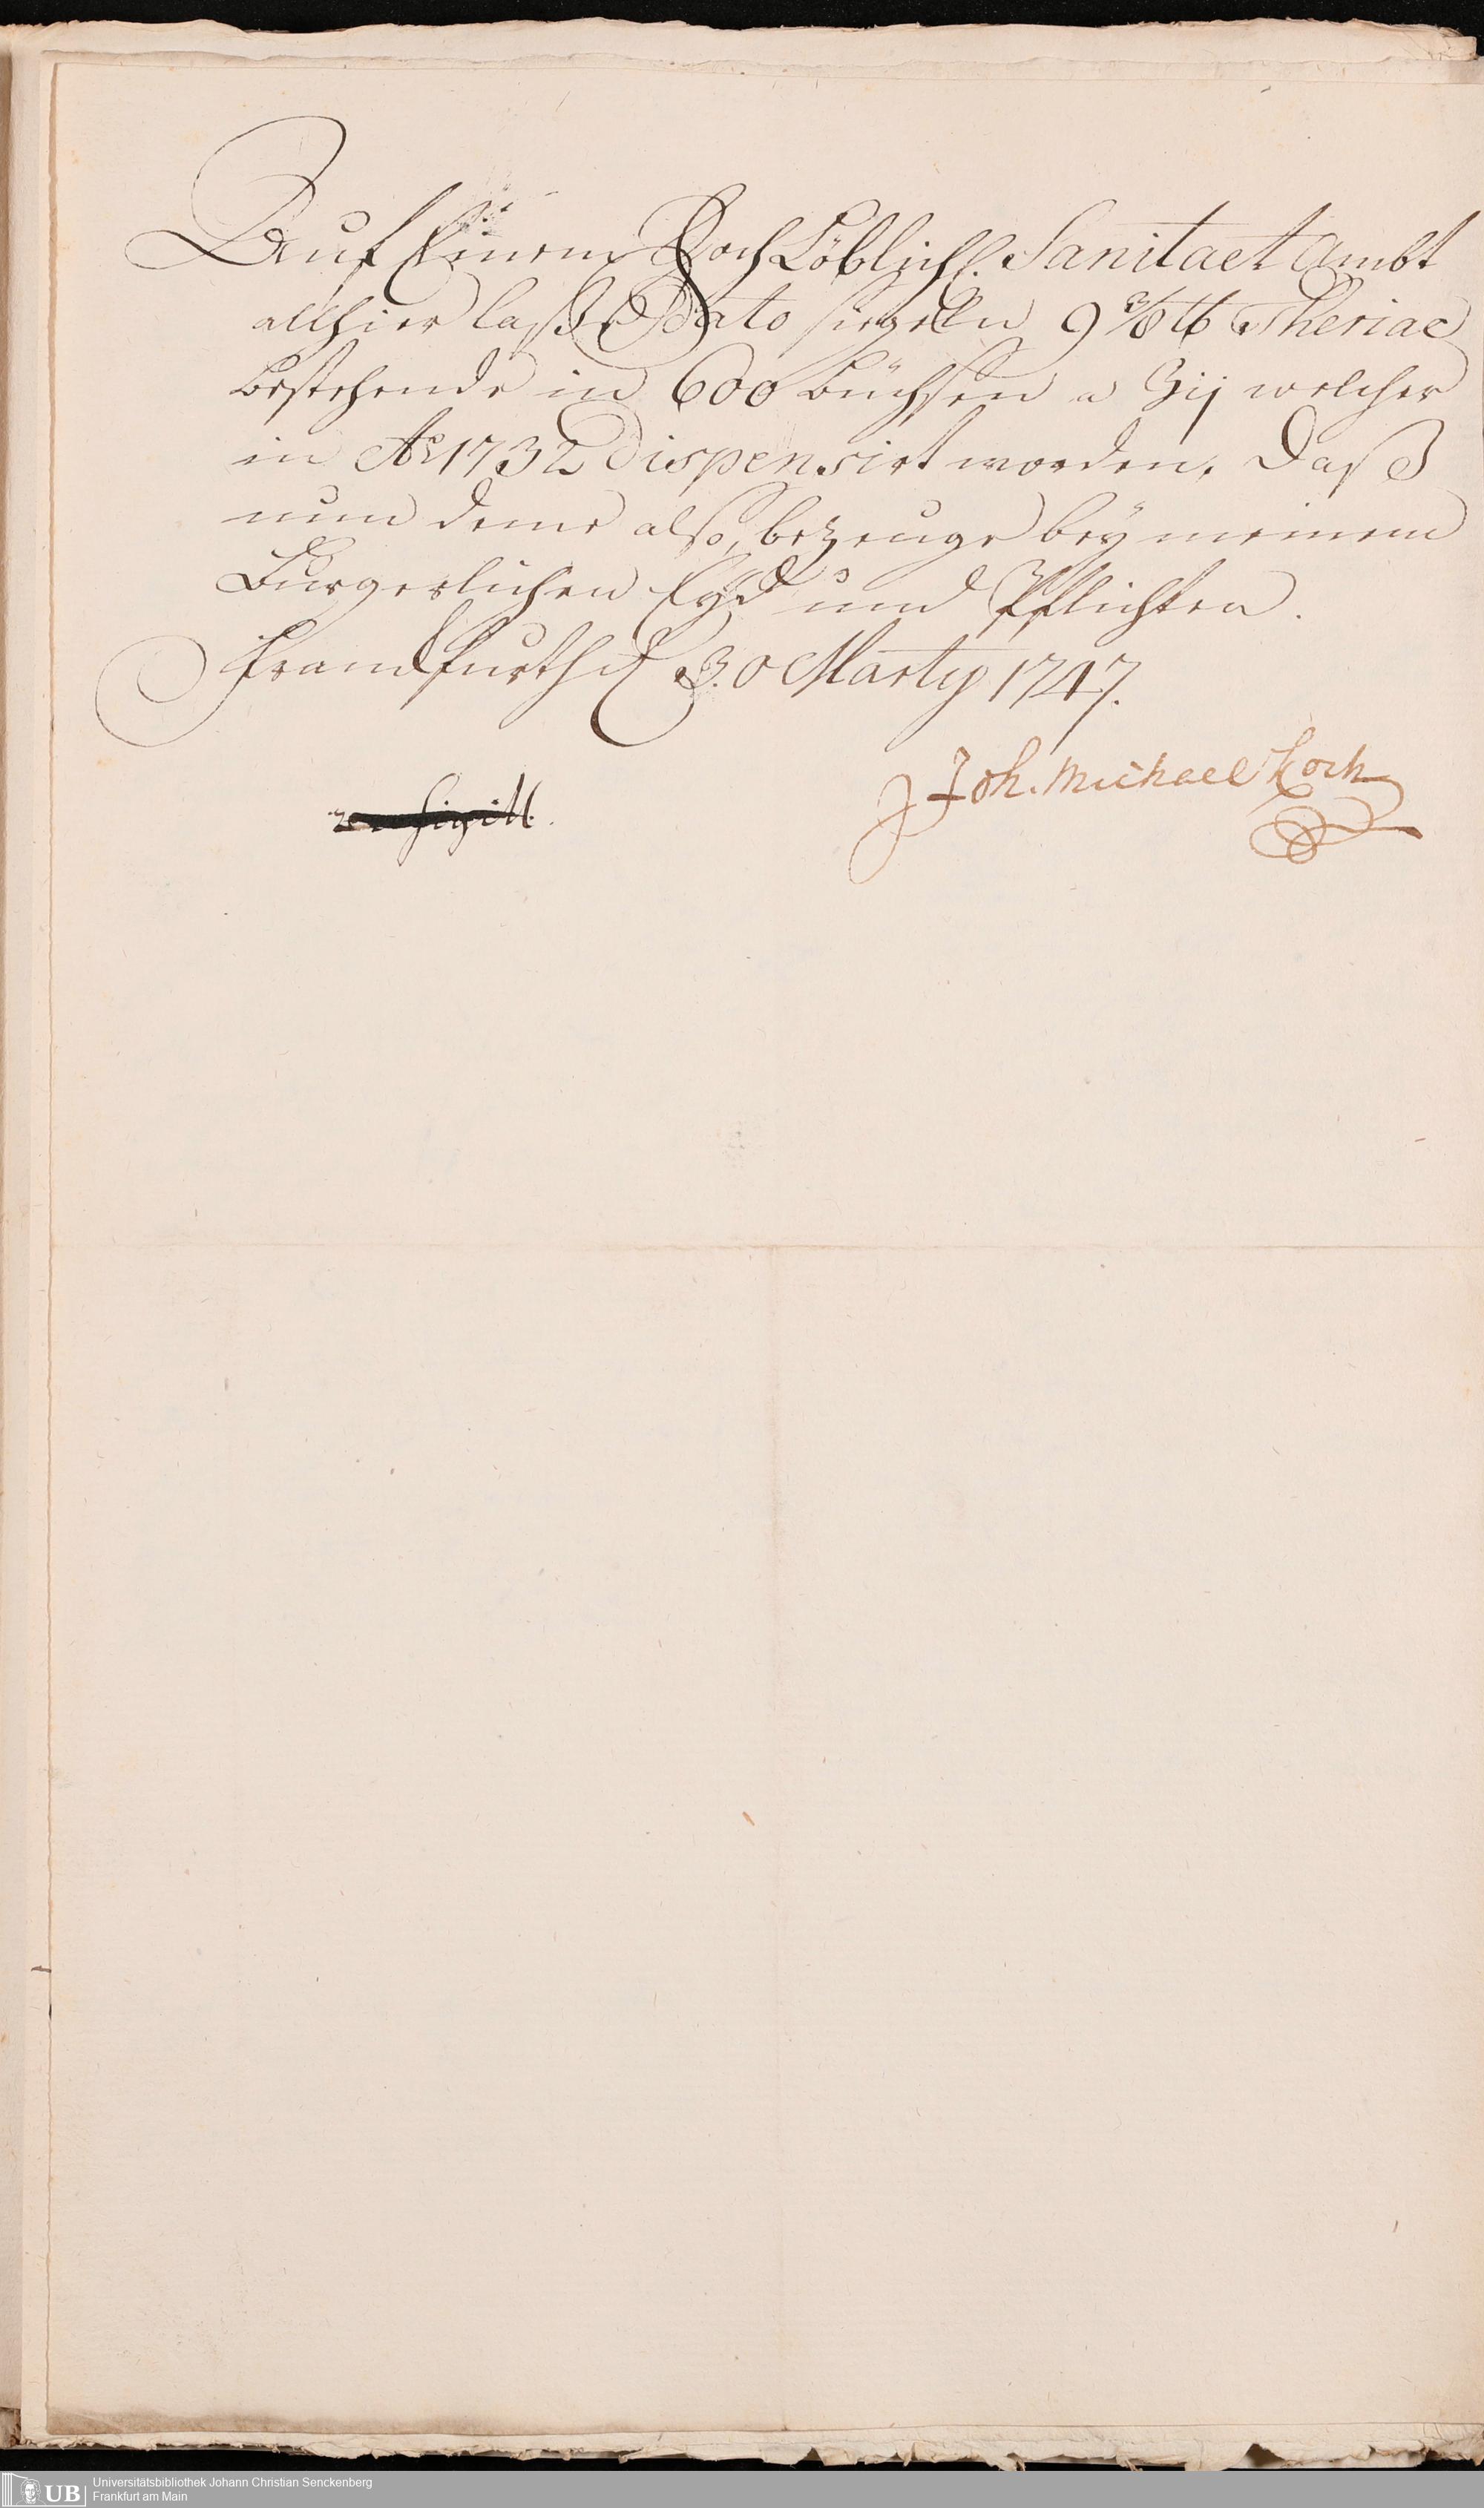 Auf Einem HochLöblich. Sanitaet Ambt
allhier laße Dato siegeln 9 3/8 ℔ Theriac
bestehende in 600 büchsen a ʒij welcher
in Aō 1732 Dispensirt worden. Daß
nun deme also, bezeuge beÿ meinem
Burgerlichen Eyd und Pflichten.
Franckfurth d. 30 Martij 1747.
Joh. Michael Koch
sigill.
Universitätsbibliothek Johann Christian Senckenberg
Frankfurt am Main
UB